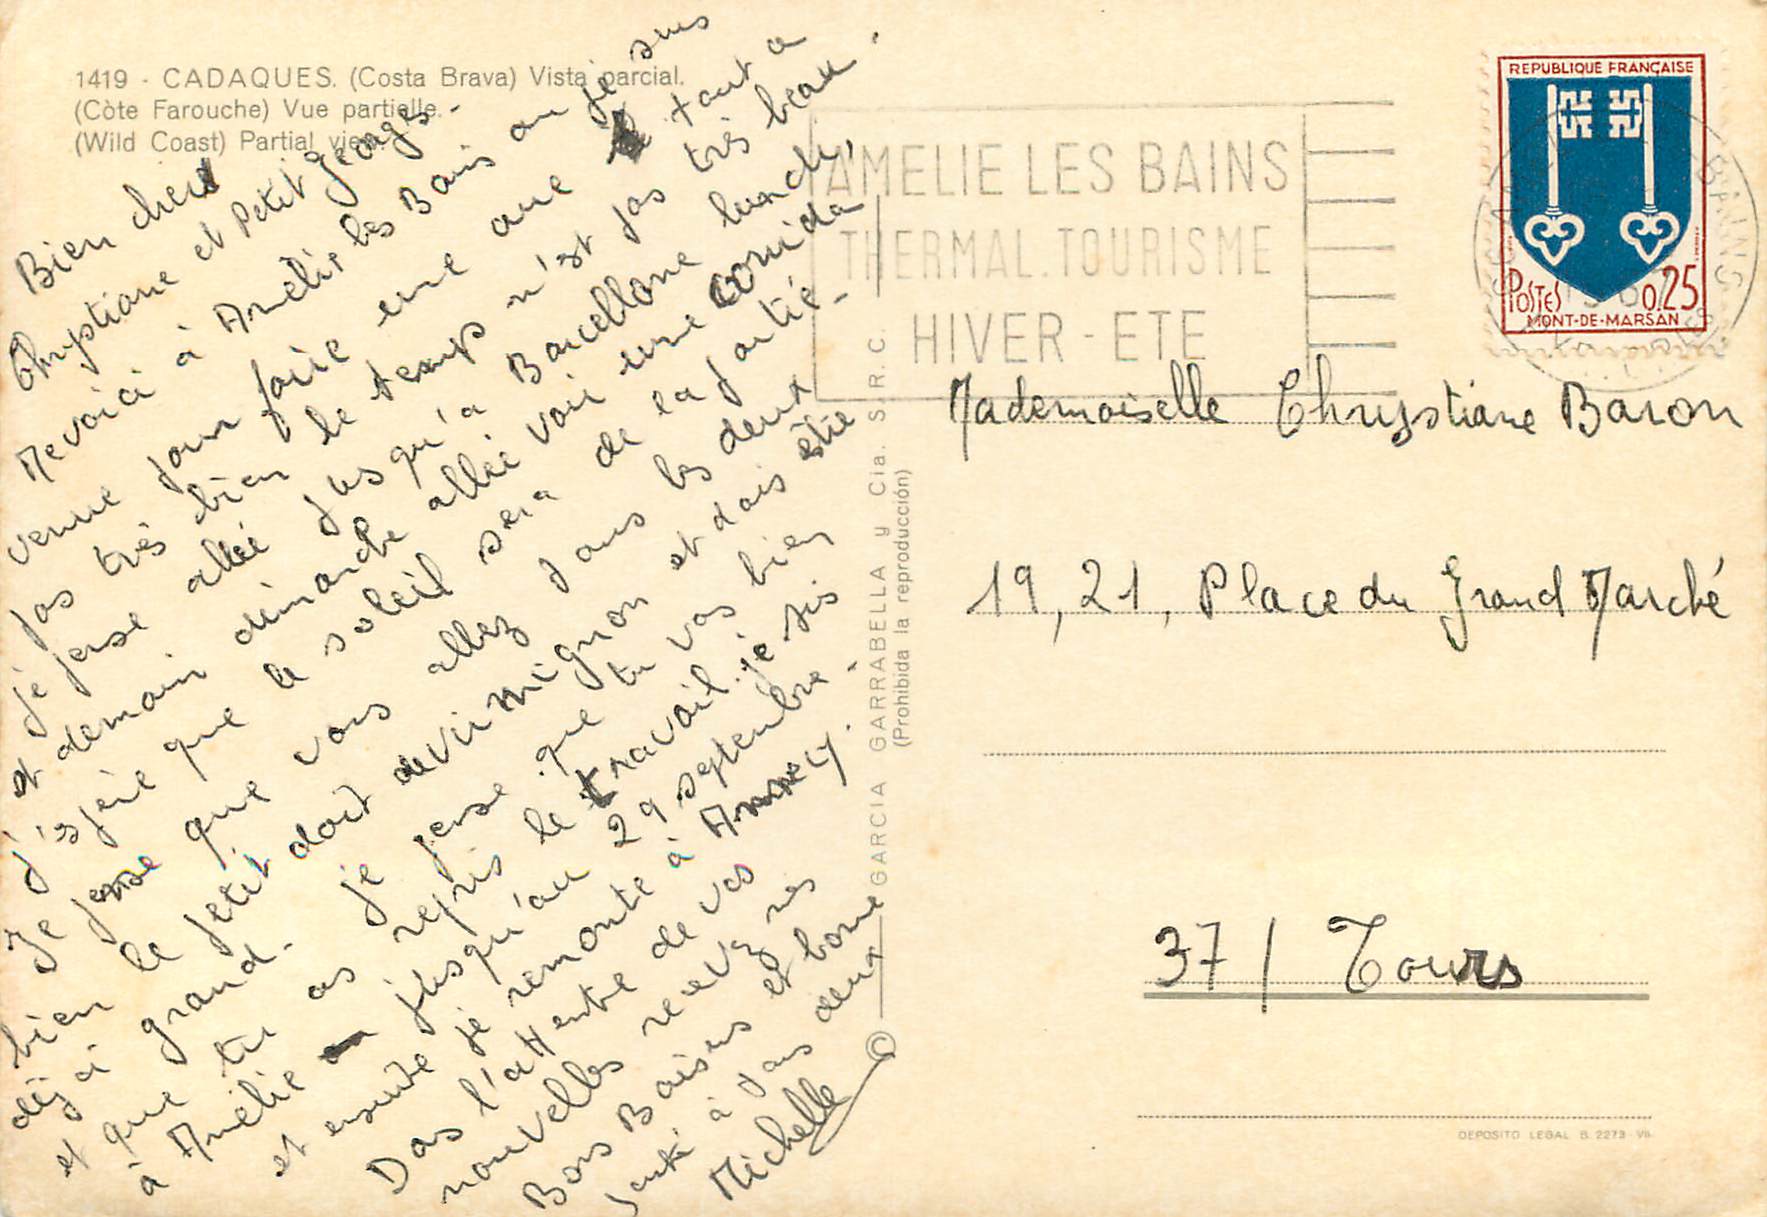 1419 - CADAQUES. (Costa Brava) Vista parcial.
(Côte Farouche) Vue partielle.
(Wild Coast) Partial view.
Bien cher
Chrystiane et petit Georges.
Me voici à Amélie les Bains ou je suis
venue pour faire une cure tout a
pas très bien le temps n'est pas très beau.
je pense allée jusqu'a Barcellone lundi,
et demain dimanche allée voir une corrida
j'espère que le soleil sera de la partie.
Je pense que vous allez tous les deux
bien le petit doit devenir mignon et dois être
déjà grand. je pense que tu vas bien
et que tu as repris le travail. je suis
à Amélie jusqu'au 29 septembre.
et ensuite je remonte à Annecy.
Das l'attente de vos
nouvelles recevez mes
Bons Baisers et bonne
santé à tous deux
Michelle
GARCIA GARRABELLA y Cia. S. R. C.
(Prohibida la reproducción)
©
AMELIE LES BAINS
THERMAL.TOURISME
HIVER - ETE
REPUBLIQUE FRANÇAISE
POSTES 0,25
MONT-DE-MARSAN
BAINS
Mademoiselle Chrystiane Baron
19, 21, Place du Grand Marché
37 / Tours
DEPOSITO LEGAL B. 2273 - VII